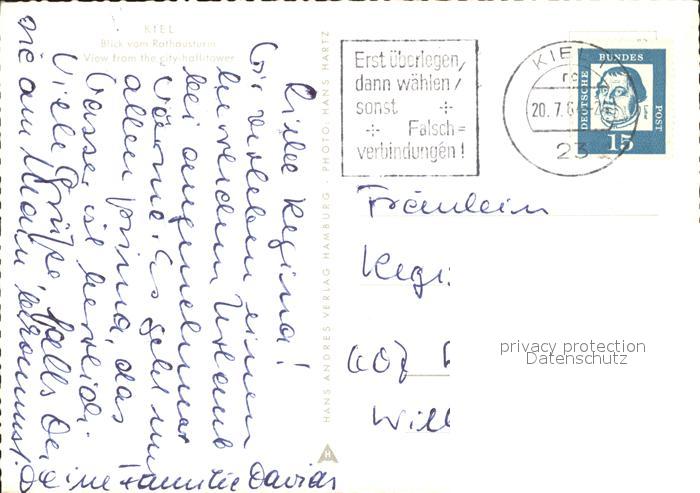 KIEL
Blick vom Rathausturm
View from the city-hall tower
Liebe Regina!
Wir verleben einen
herrlichen Urlaub
bei angenehmer
Wärme. Es geht uns
allen prima, das
Wasser ist herrlich.
Viele Grüße, falls Du
sie am Main bekommst.
Deine Familie Davids
HANS ANDRES VERLAG HAMBURG · PHOTO: HANS HARTZ
Erst überlegen,
dann wählen,
sonst
Falsch=
verbindungen!
KIEL
20.7.6
23
DEUTSCHE
BUNDES
POST
15
Fräulein
Regi
607
Will
privacy protection
Datenschutz